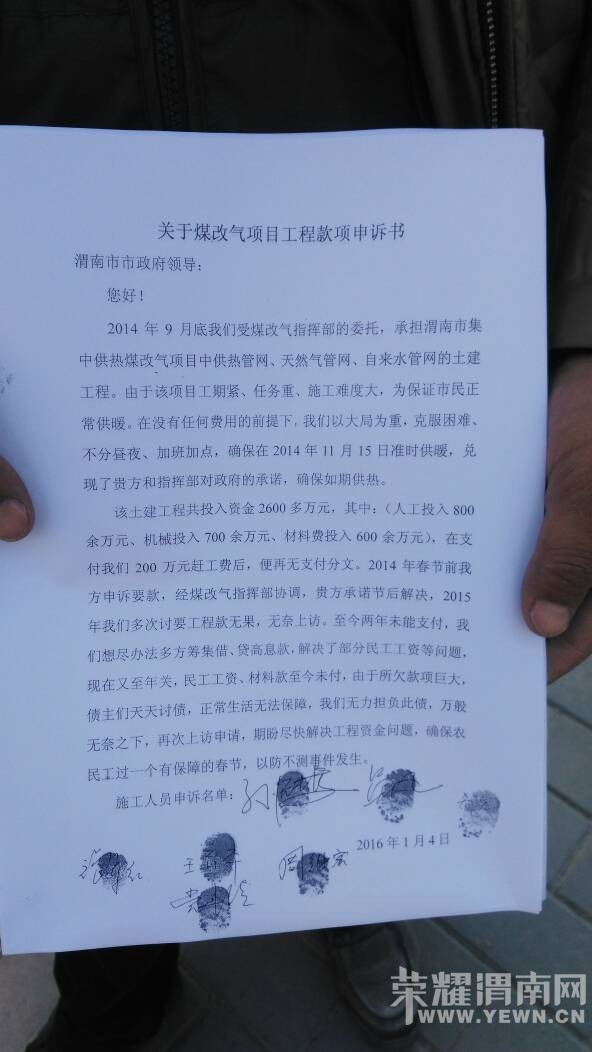 关于煤改气项目工程款项申诉书
渭南市市政府领导：
您好！
2014 年 9 月底我们受煤改气指挥部的委托，承担渭南市集
中供热煤改气项目中供热管网、天然气管网、自来水管网的土建
工程。由于该项目工期紧、任务重、施工难度大，为保证市民正
常供暖。在没有任何费用的前提下，我们以大局为重，克服困难、
不分昼夜、加班加点，确保在 2014 年 11 月 15 日准时供暖，兑
现了贵方和指挥部对政府的承诺，确保如期供热。
该土建工程共投入资金 2600 多万元，其中：（人工投入 800
余万元、机械投入 700 余万元、材料费投入 600 余万元），在支
付我们 200 万元赶工费后，便再无支付分文。2014 年春节前我
方申诉要款，经煤改气指挥部协调，贵方承诺节后解决，2015
年我们多次讨要工程款无果，无奈上访。至今两年未能支付，我
们想尽办法多方筹集借、贷高息款，解决了部分民工工资等问题，
现在又至年关，民工工资、材料款至今未付，由于所欠款项巨大，
债主们天天讨债，正常生活无法保障，我们无力担负此债，万般
无奈之下，再次上访申请，期盼尽快解决工程资金问题，确保农
民工过一个有保障的春节，以防不测事件发生。
施工人员申诉名单：
2016 年 1 月 4 日
荣耀渭南网
WWW.YEWN.CN